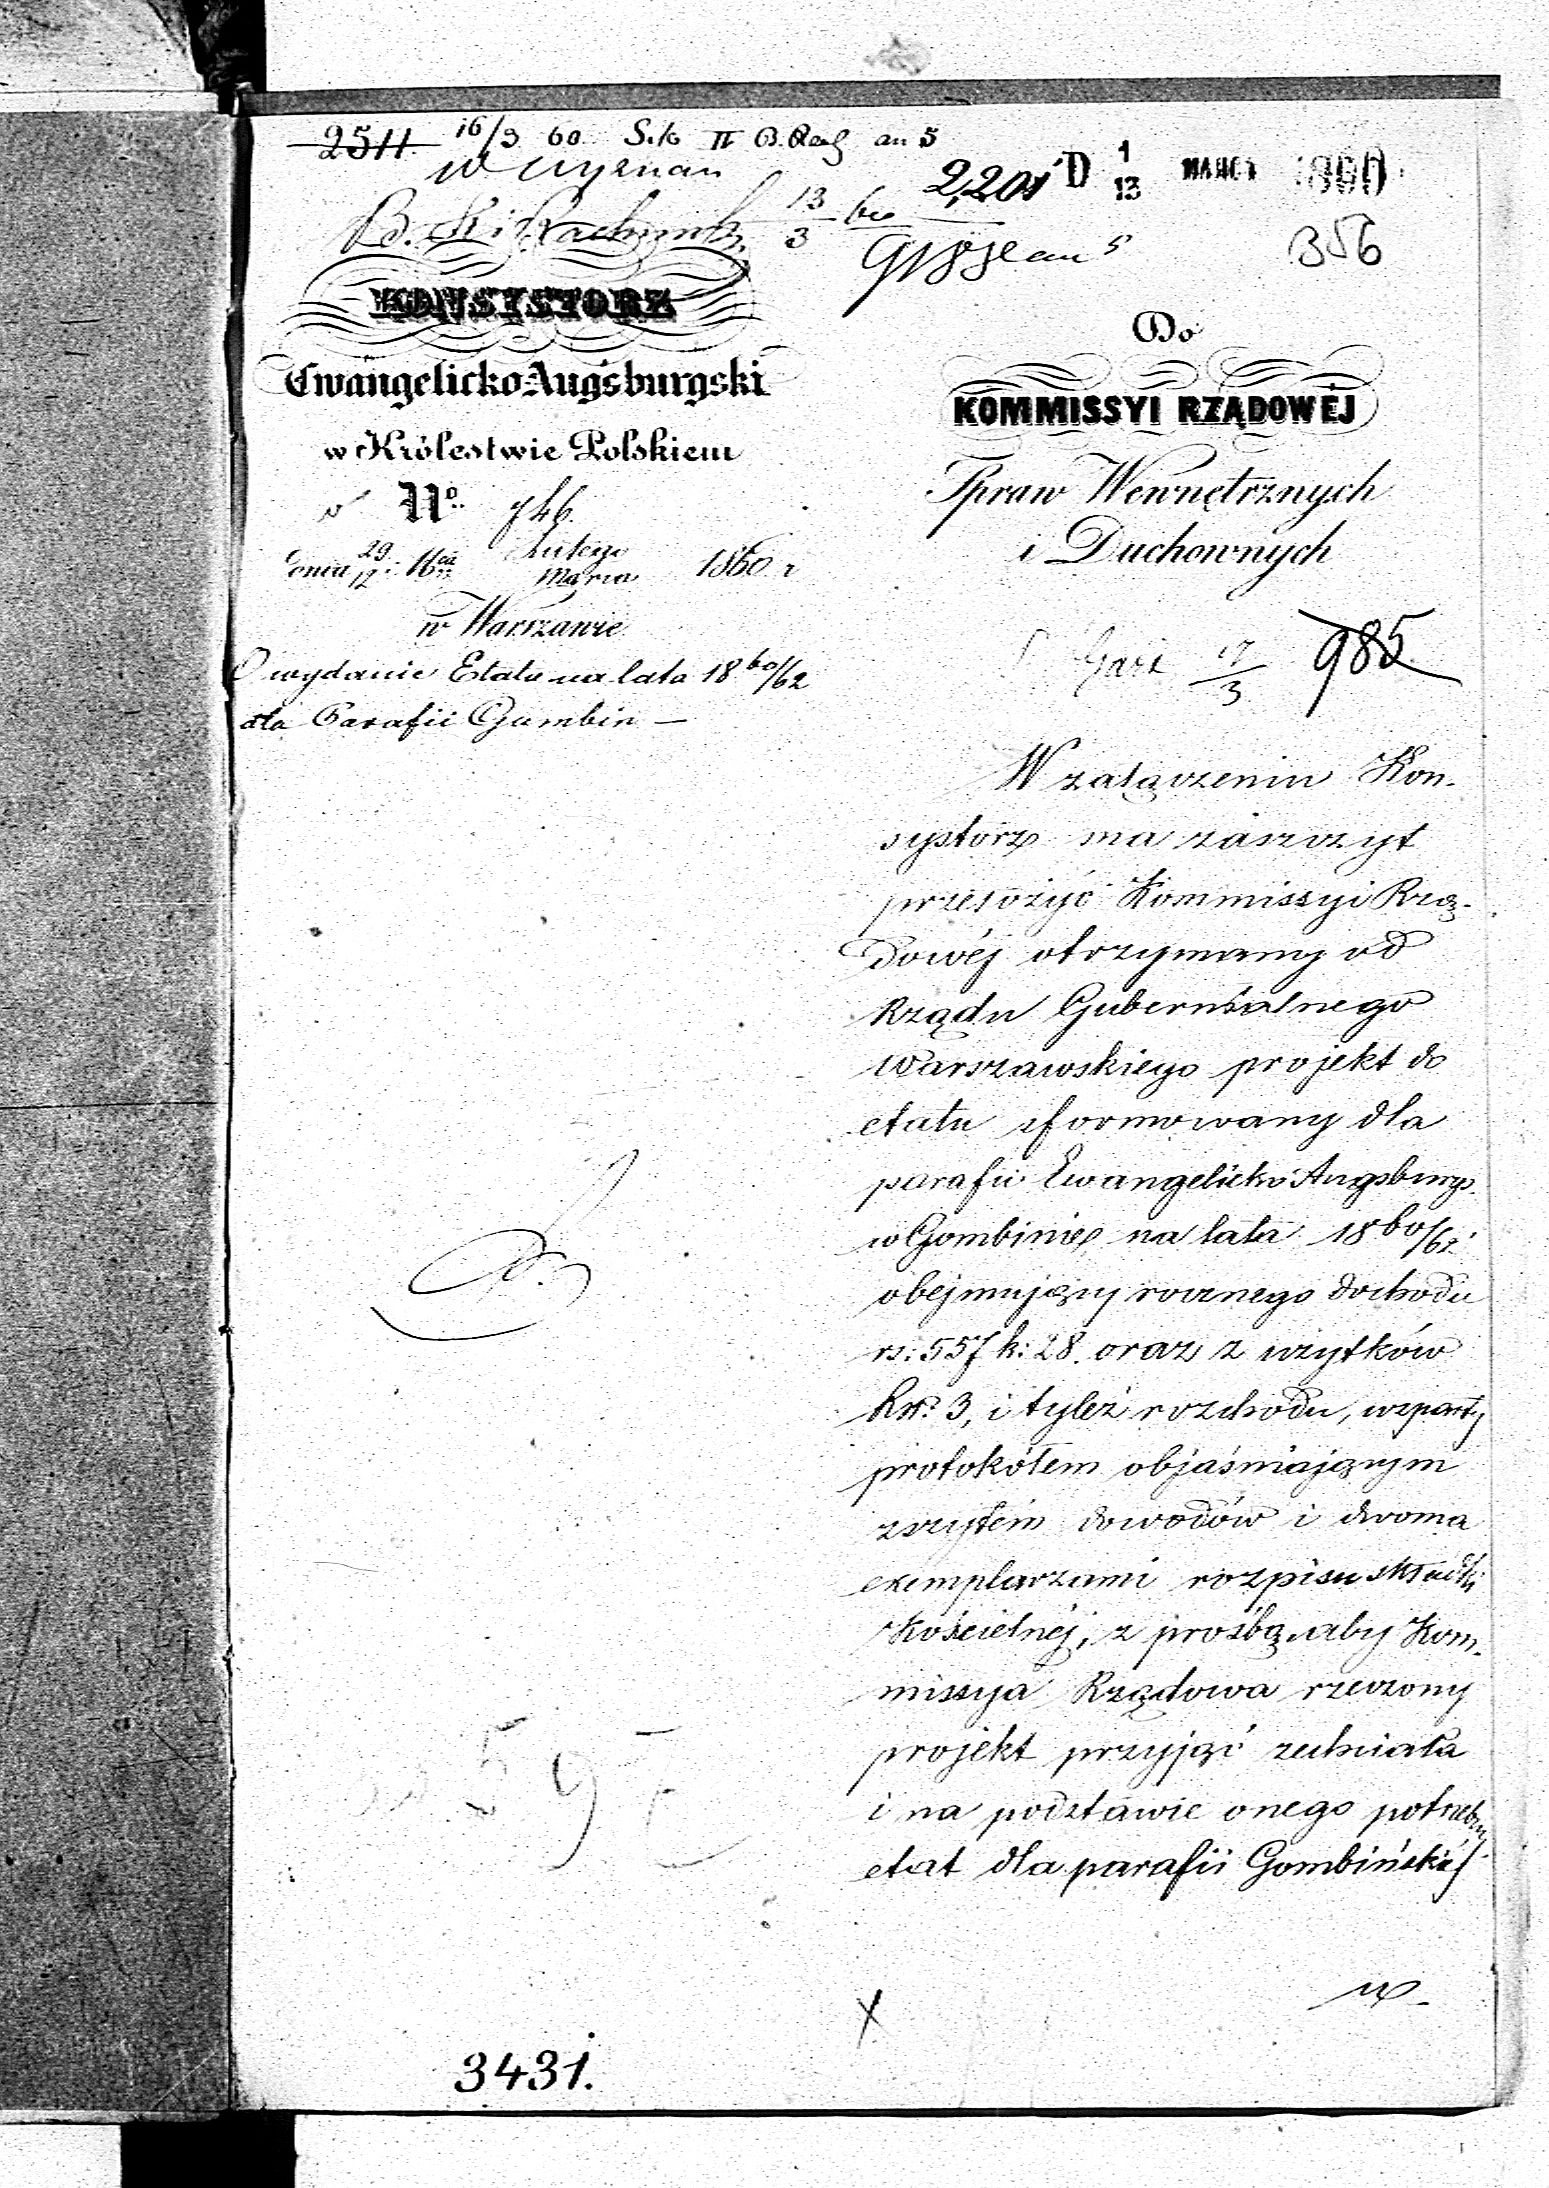 2511. 16/3 60 S.k II B.
2,201 D 1/13 1860
13/3
356
KONSYSTORZ
Ewangelicko-Augsburgski
w Królestwie Polskiem
No. 746.
dnia 29/12 Lutego/Marca 1860 r
w Warszawie
O wydanie Etatu na lata 1860/62
dla Parafii Gumbin —
Do
KOMMISSYI RZĄDOWÉJ
Spraw Wewnętrznych
i Duchownych
17/3 985
W załączeniu Kon-
systorz ma zaszczyt
przełożyć Kommissyi Rzą-
dowéj otrzymany od
Rządu Gubernialnego
Warszawskiego projekt do
etatu sformowany dla
parafii Ewangelicko Augsburgs.
w Gombinie na lata 1860/62
obejmujący rocznego dochodu
rs: 557 k: 28. oraz z użytków
Rs. 3, i tyleż rozchodu, wsparty
protokółem objaśniającym
zszytem dowodów i dwoma
exemplarzami rozpisu składki
Kościelnéj, z prośbą aby Kom-
missya Rządowa rzeczony
projekt przyjąć zechciała
i na podstawie onego potrzebny
etat dla parafii Gombińskiéj
3431.